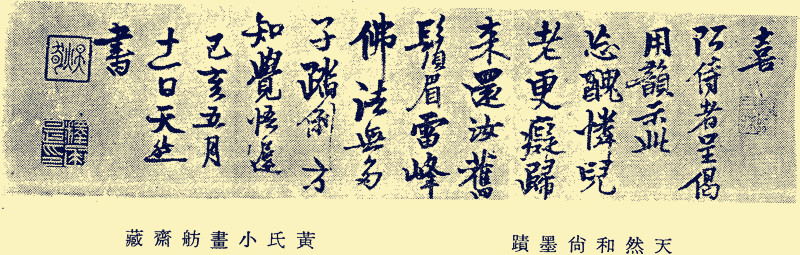 喜
阿侍者呈偈
用韻示此
忘醜憐兒
老更癡歸
來還汝舊
鬚眉雷峰
佛法無多
子踏倒方
知覺悟遲
己亥五月
十一日天然
書
天然和尙墨蹟
黃氏小畫舫齋藏